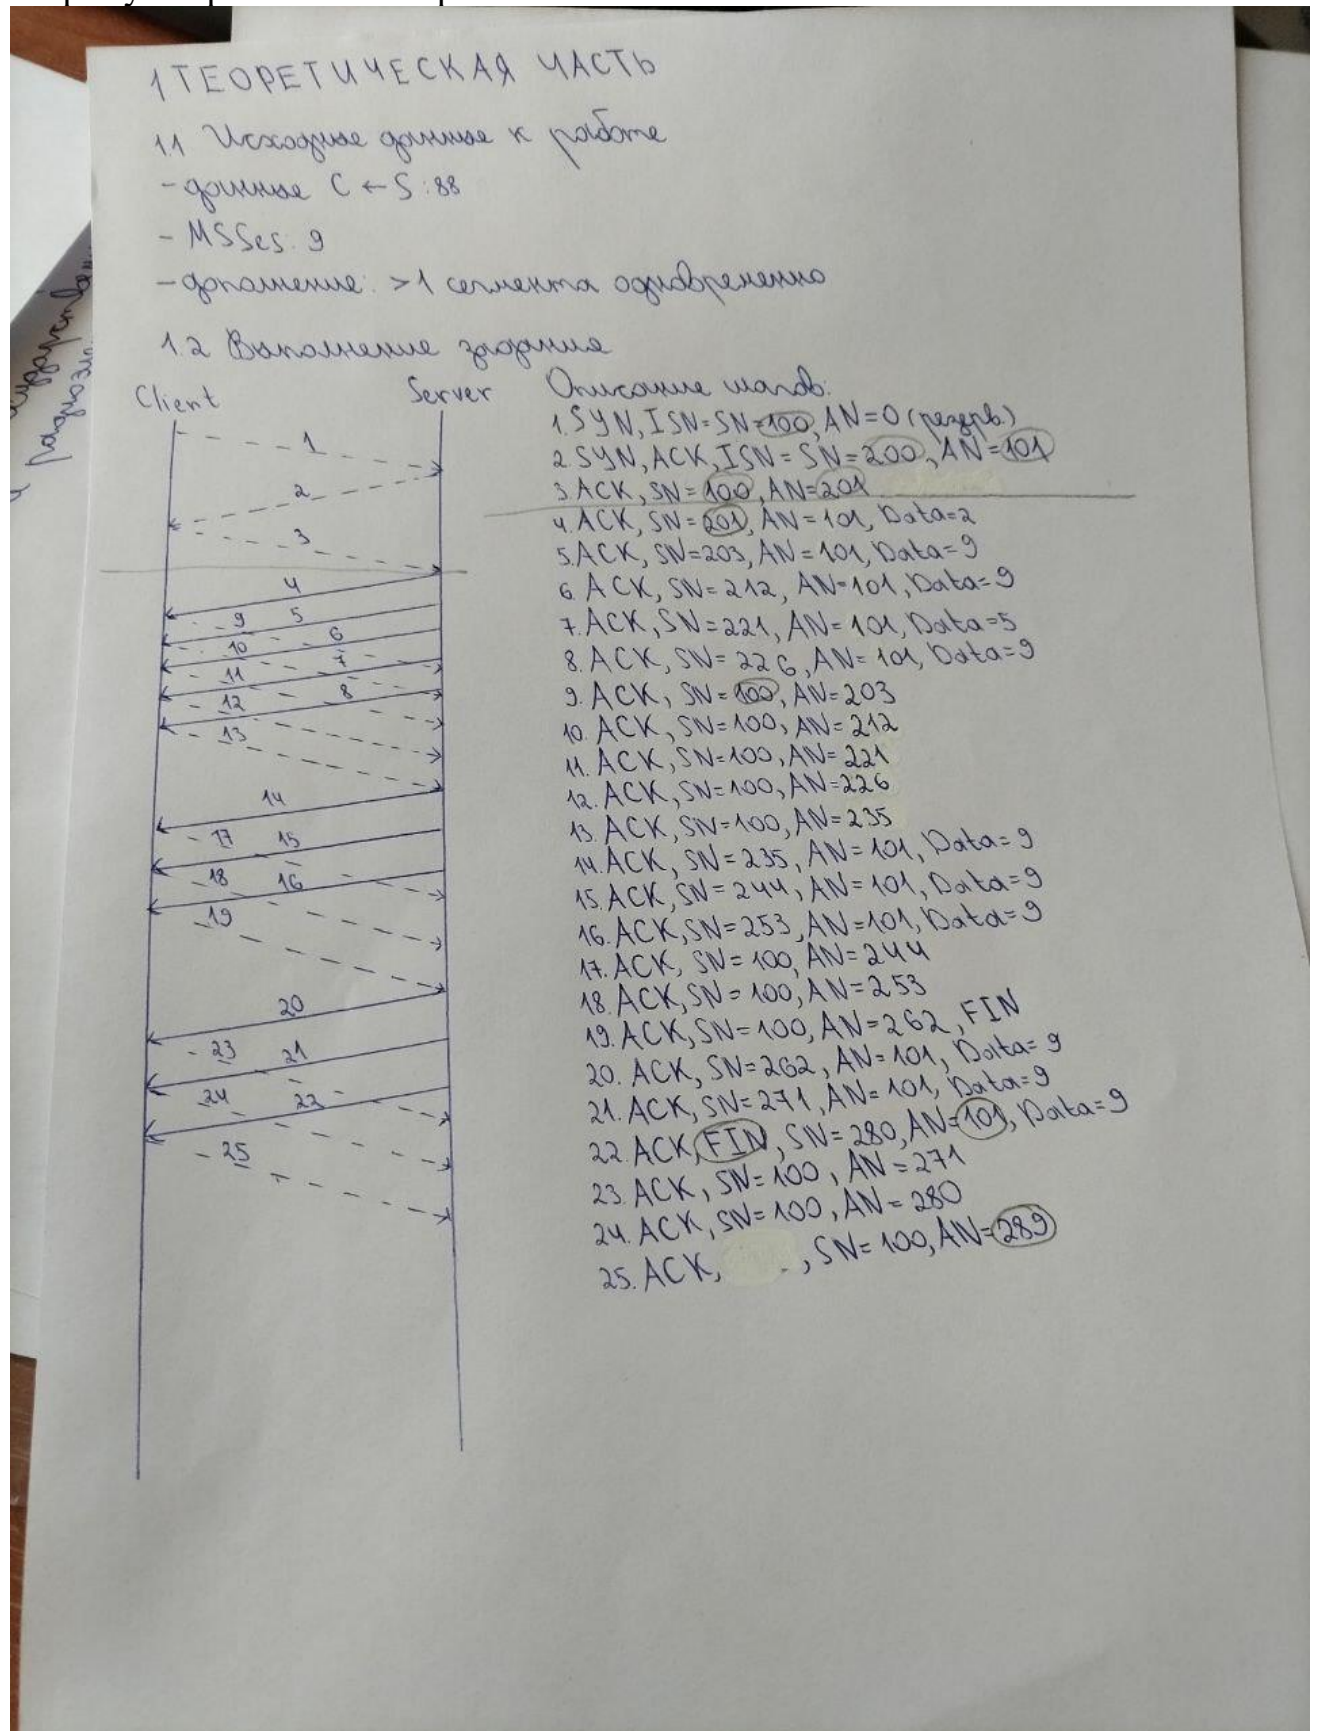 1 ТЕОРЕТИЧЕСКАЯ ЧАСТЬ
1.1 Исходные данные к работе
- данные C ← S: 88
- MSScs: 9
- дополнение: >1 сегмента одновременно
1.2 Выполнение задания
Client Server Описание шагов:
1. SYN, ISN=SN=100, AN=0 (резерв.)
2. SYN, ACK, ISN=SN=200, AN=101
3. ACK, SN=100, AN=201
4. ACK, SN=201, AN=101, Data=2
5. ACK, SN=203, AN=101, Data=9
6. ACK, SN=212, AN=101, Data=9
7. ACK, SN=221, AN=101, Data=5
8. ACK, SN=226, AN=101, Data=9
9. ACK, SN=100, AN=203
10. ACK, SN=100, AN=212
11. ACK, SN=100, AN=221
12. ACK, SN=100, AN=226
13. ACK, SN=100, AN=235
14. ACK, SN=235, AN=101, Data=9
15. ACK, SN=244, AN=101, Data=9
16. ACK, SN=253, AN=101, Data=9
17. ACK, SN=100, AN=244
18. ACK, SN=100, AN=253
19. ACK, SN=100, AN=262, FIN
20. ACK, SN=262, AN=101, Data=9
21. ACK, SN=271, AN=101, Data=9
22. ACK, FIN, SN=280, AN=101, Data=9
23. ACK, SN=100, AN=271
24. ACK, SN=100, AN=280
25. ACK, , SN=100, AN=289
1
2
3
4
5
9
6
10
7
11
8
12
13
14
17
15
18
16
19
20
23
21
24
22
25